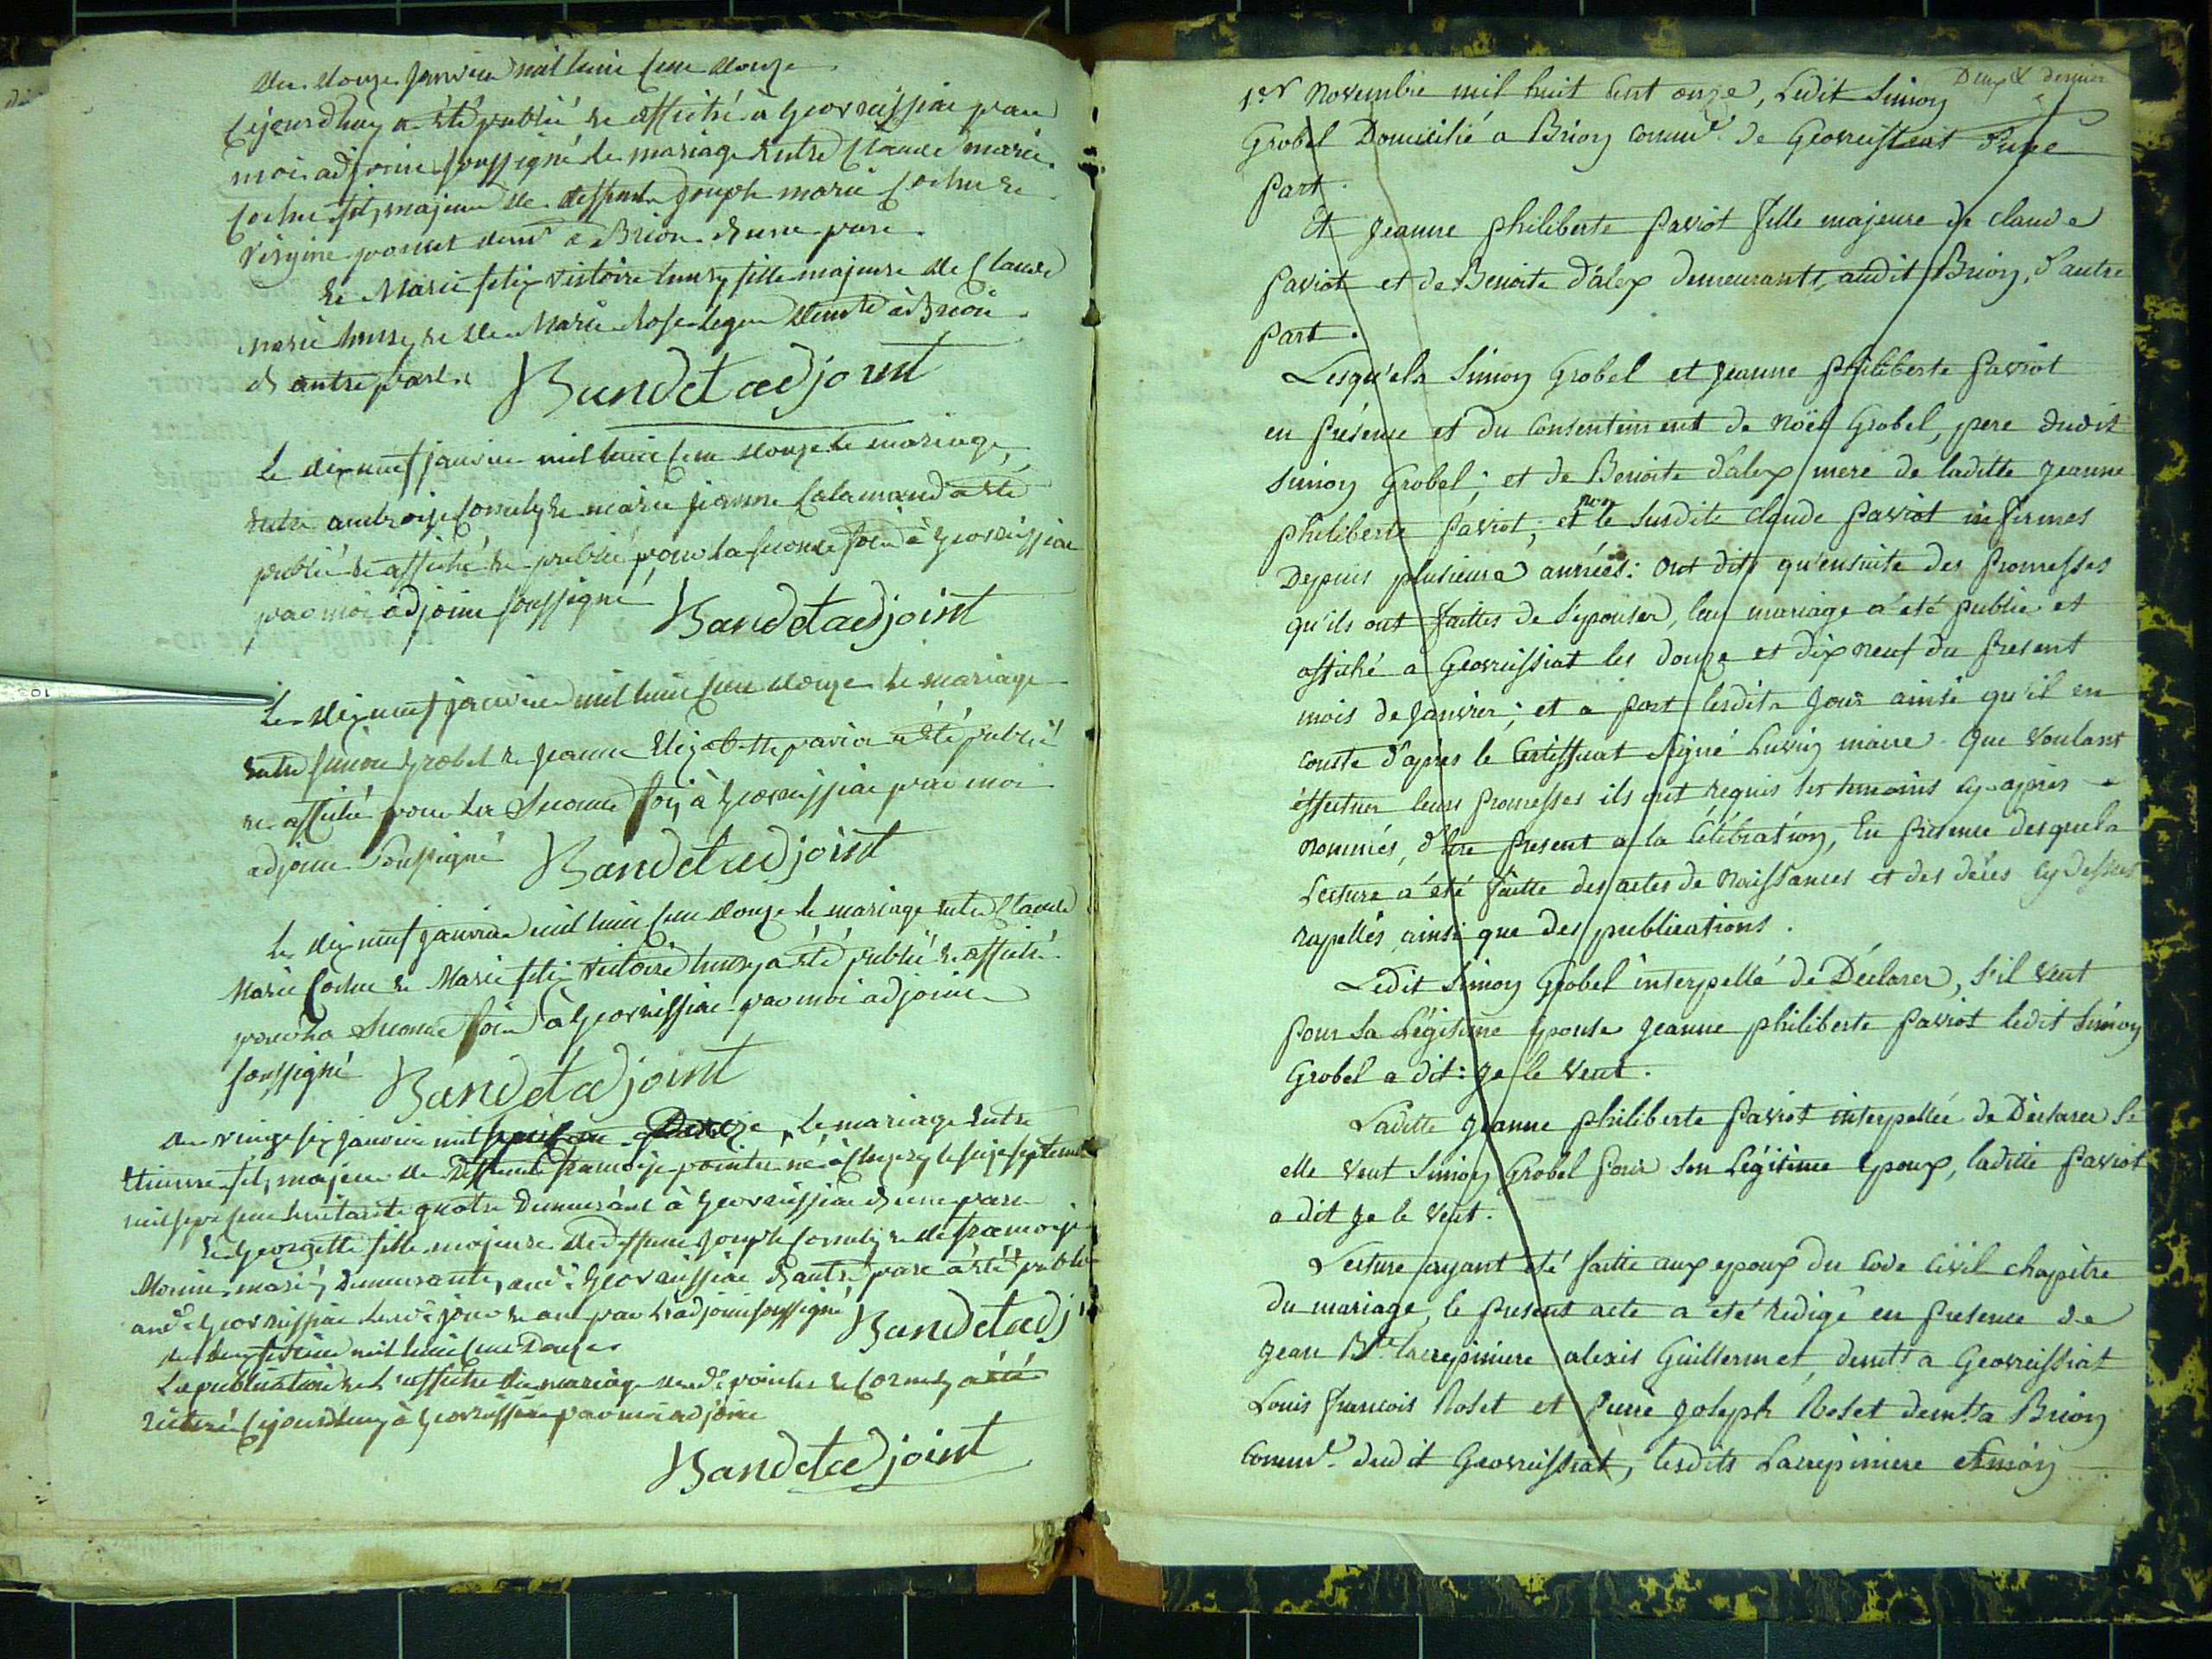 du douze janvier mil huit cent douze
cejourdhuy a été publié et affiché a Geovreissiat par
moi adjoint soussigné le mariage entre Claude marie
cochu fils majeur de deffunt joseph marie cochu et
virginie poncet demt a Brion d'une part
et Marie felix victoire humy fille majeure de Claude
marie humy et de Marie Rose leger demte à Brion
d'autre part. Bandet adjoint
le dix neuf janvier mil huit cent douze le mariage
entre ambroise et marie jeanne a été
publié et affiché et publié pour la seconde fois à Geovreissiat
par moi adjoint soussigné Bandet adjoint
le dix neuf janvier mil huit cent douze le mariage
entre simon grobel et jeanne pavio a été publié
et affiché pour la seconde fois à Geovreissiat par moi
adjoint soussigné Bandet adjoint
le dix neuf janvier mil huit cent douze le mariage entre Claude
Marie cochu et Marie felix victoire humy a été publié et affiché
pour la seconde fois à Geovreissiat par moi adjoint
soussigné Bandet adjoint
du vingt six janvier mil le mariage entre
Etienne fils majeur de deffunt françois pointu né à le seize septembre
mil sept cent huitante quatre demeurant à Geovreissiat d'une part
et Georgette fille majeure de deffunt joseph et de françoise
demeurante aud. Geovreissiat d'autre part a été publié
aud. Geovreissiat lesd. jour et an par l'adjoint soussigné Bandet adj
du deux février mil huit cent douze
la publication et l'affiche du mariage desd. pointu et a été
réitéré cejourdhuy à Geovreissiat par moi adjoint
Bandet adjoint
Deux & dernier
1er Novembre mil huit cent onze, Ledit Simon
Grobel Domicilié a Brion Commne de Geovreissiat d'une
part.
Et Jeanne philiberte Paviot fille majeure de claude
Paviot et de Benoite d'alex demeurants audit Brion, d'autre
part.
Lesqu'els Simon Grobel et Jeanne philiberte Paviot
en présence et du consentement de Noël Grobel, pere dudit
Simon Grobel; et de Benoite d'alex mere de laditte Jeanne
philiberte Paviot; et non le susdite claude Paviot infirmes
Depuis plusieurs années: ont dits qu'ensuite des promesses
qu'ils ont faittes de s'epouser, leur mariage a été publie et
affiché a Geovreissiat les douze et dix neuf du present
mois de janvier; et a Port lesdits jour ainsi qu'il en
conste d'apres le Certifficat signé maire. Que voulant
éffectuer leurs promesses ils ont requis les temoins cy-après
nommés, d'être present a la Célébration, En presence desquels
Lecture a été faitte des actes de Naissances et des décés cy dessus
rapellés ainsi que des publications.
Ledit Simon Grobel interpellé de Déclarer, s'il veut
pour sa Légitime epouse Jeanne philiberte Paviot ledit Simon
Grobel a dit: Je le veut.
Laditte Jeanne philiberte Paviot interpellée de Déclarer Si
elle veut Simon Grobel pour son Légitime epoux, laditte Paviot
a dit Je le veut.
Lecture ayant été faitte aux epoux du Code Civil chapitre
du mariage, le present acte a été redigé en presence de
Jean Bte Lacrepiniere alexis Guillermet, demts a Geovreissiat
Louis françois Roset et Pierre Joseph Roset demts a Brion
Commne dudit Geovreissiat, lesdits Lacrepiniere Simon